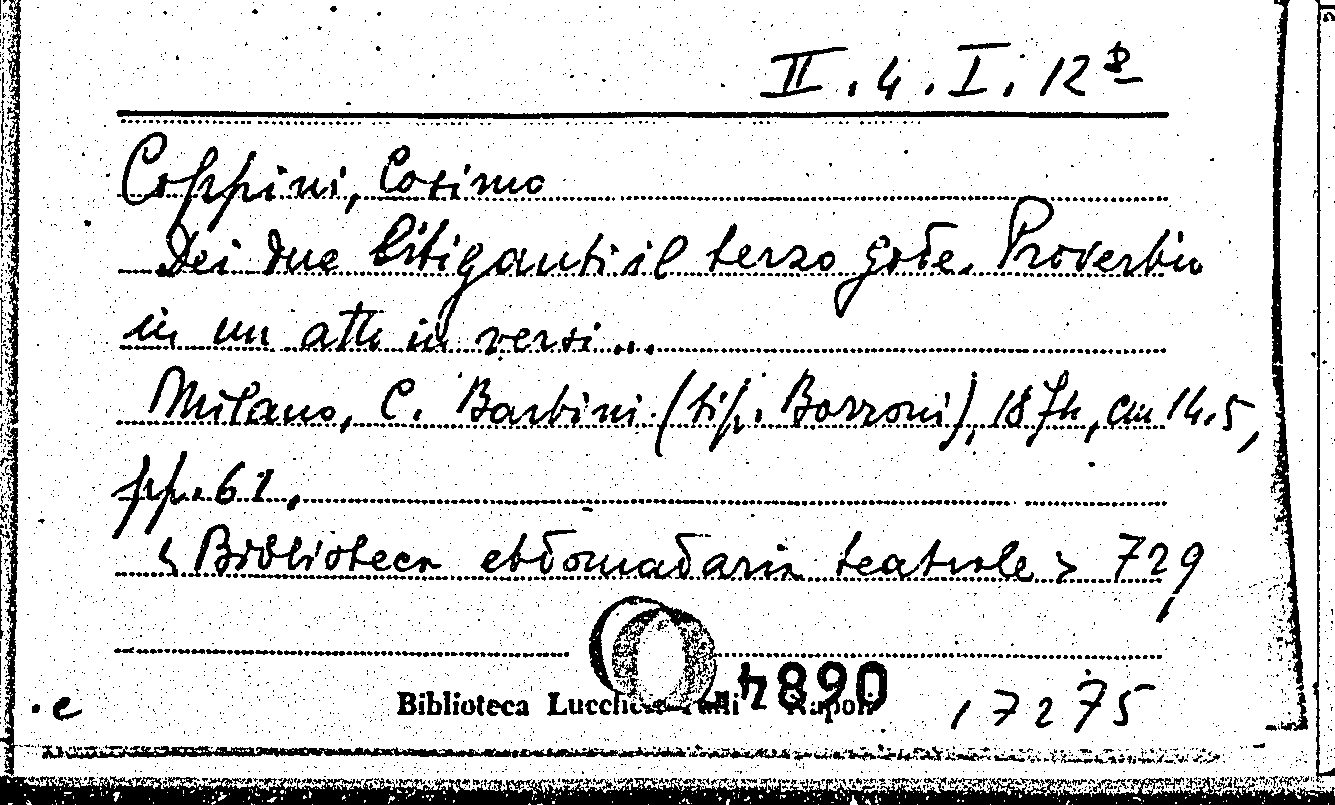 II.4.I.12 8
Coppini, Cosimo
Dei due litiganti il terzo gode. Proverbio
in un atto in versi...
Milano, C. Barbini (tip. Borroni), 1874, cm 14.5,
pp. 61.
< Biblioteca ebdomadaria teatrale > 729
Biblioteca Lucchesi Palli Napoli
17275
.e